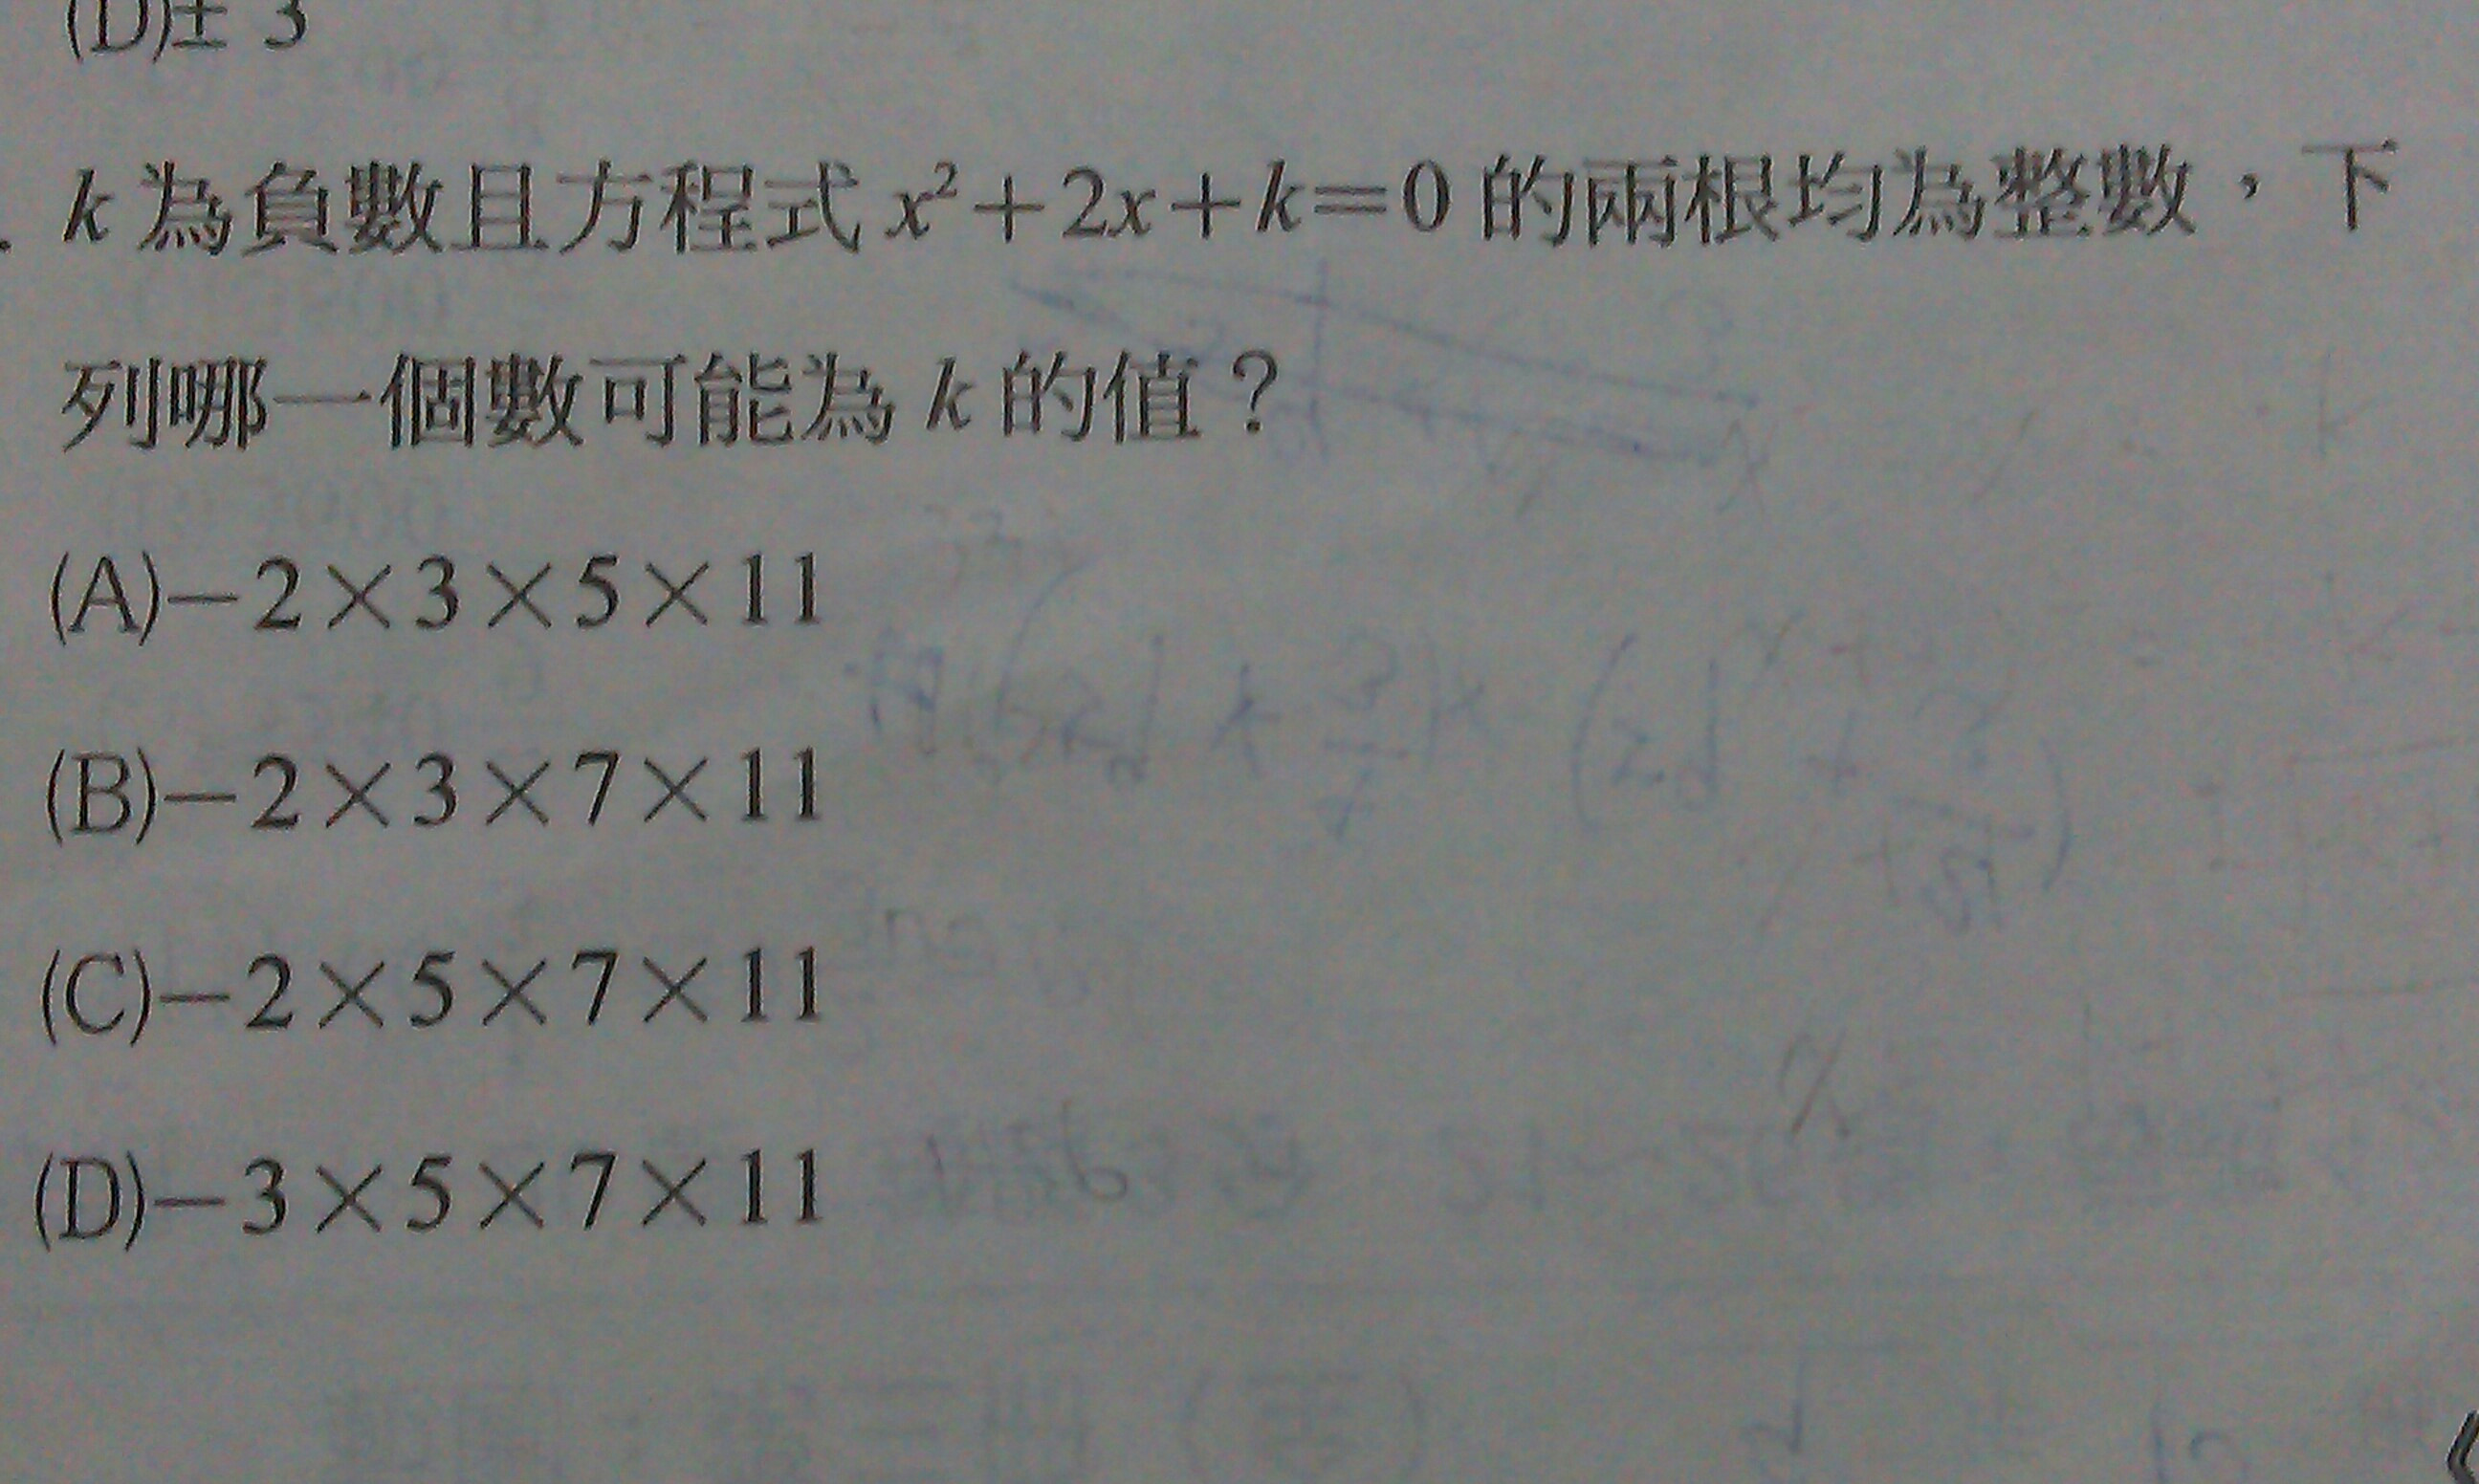 (D)± 3
k 為負數且方程式 x²+2x+k=0 的兩根均為整數，下
列哪一個數可能為 k 的值？
(A)−2×3×5×11
(B)−2×3×7×11
(C)−2×5×7×11
(D)−3×5×7×11